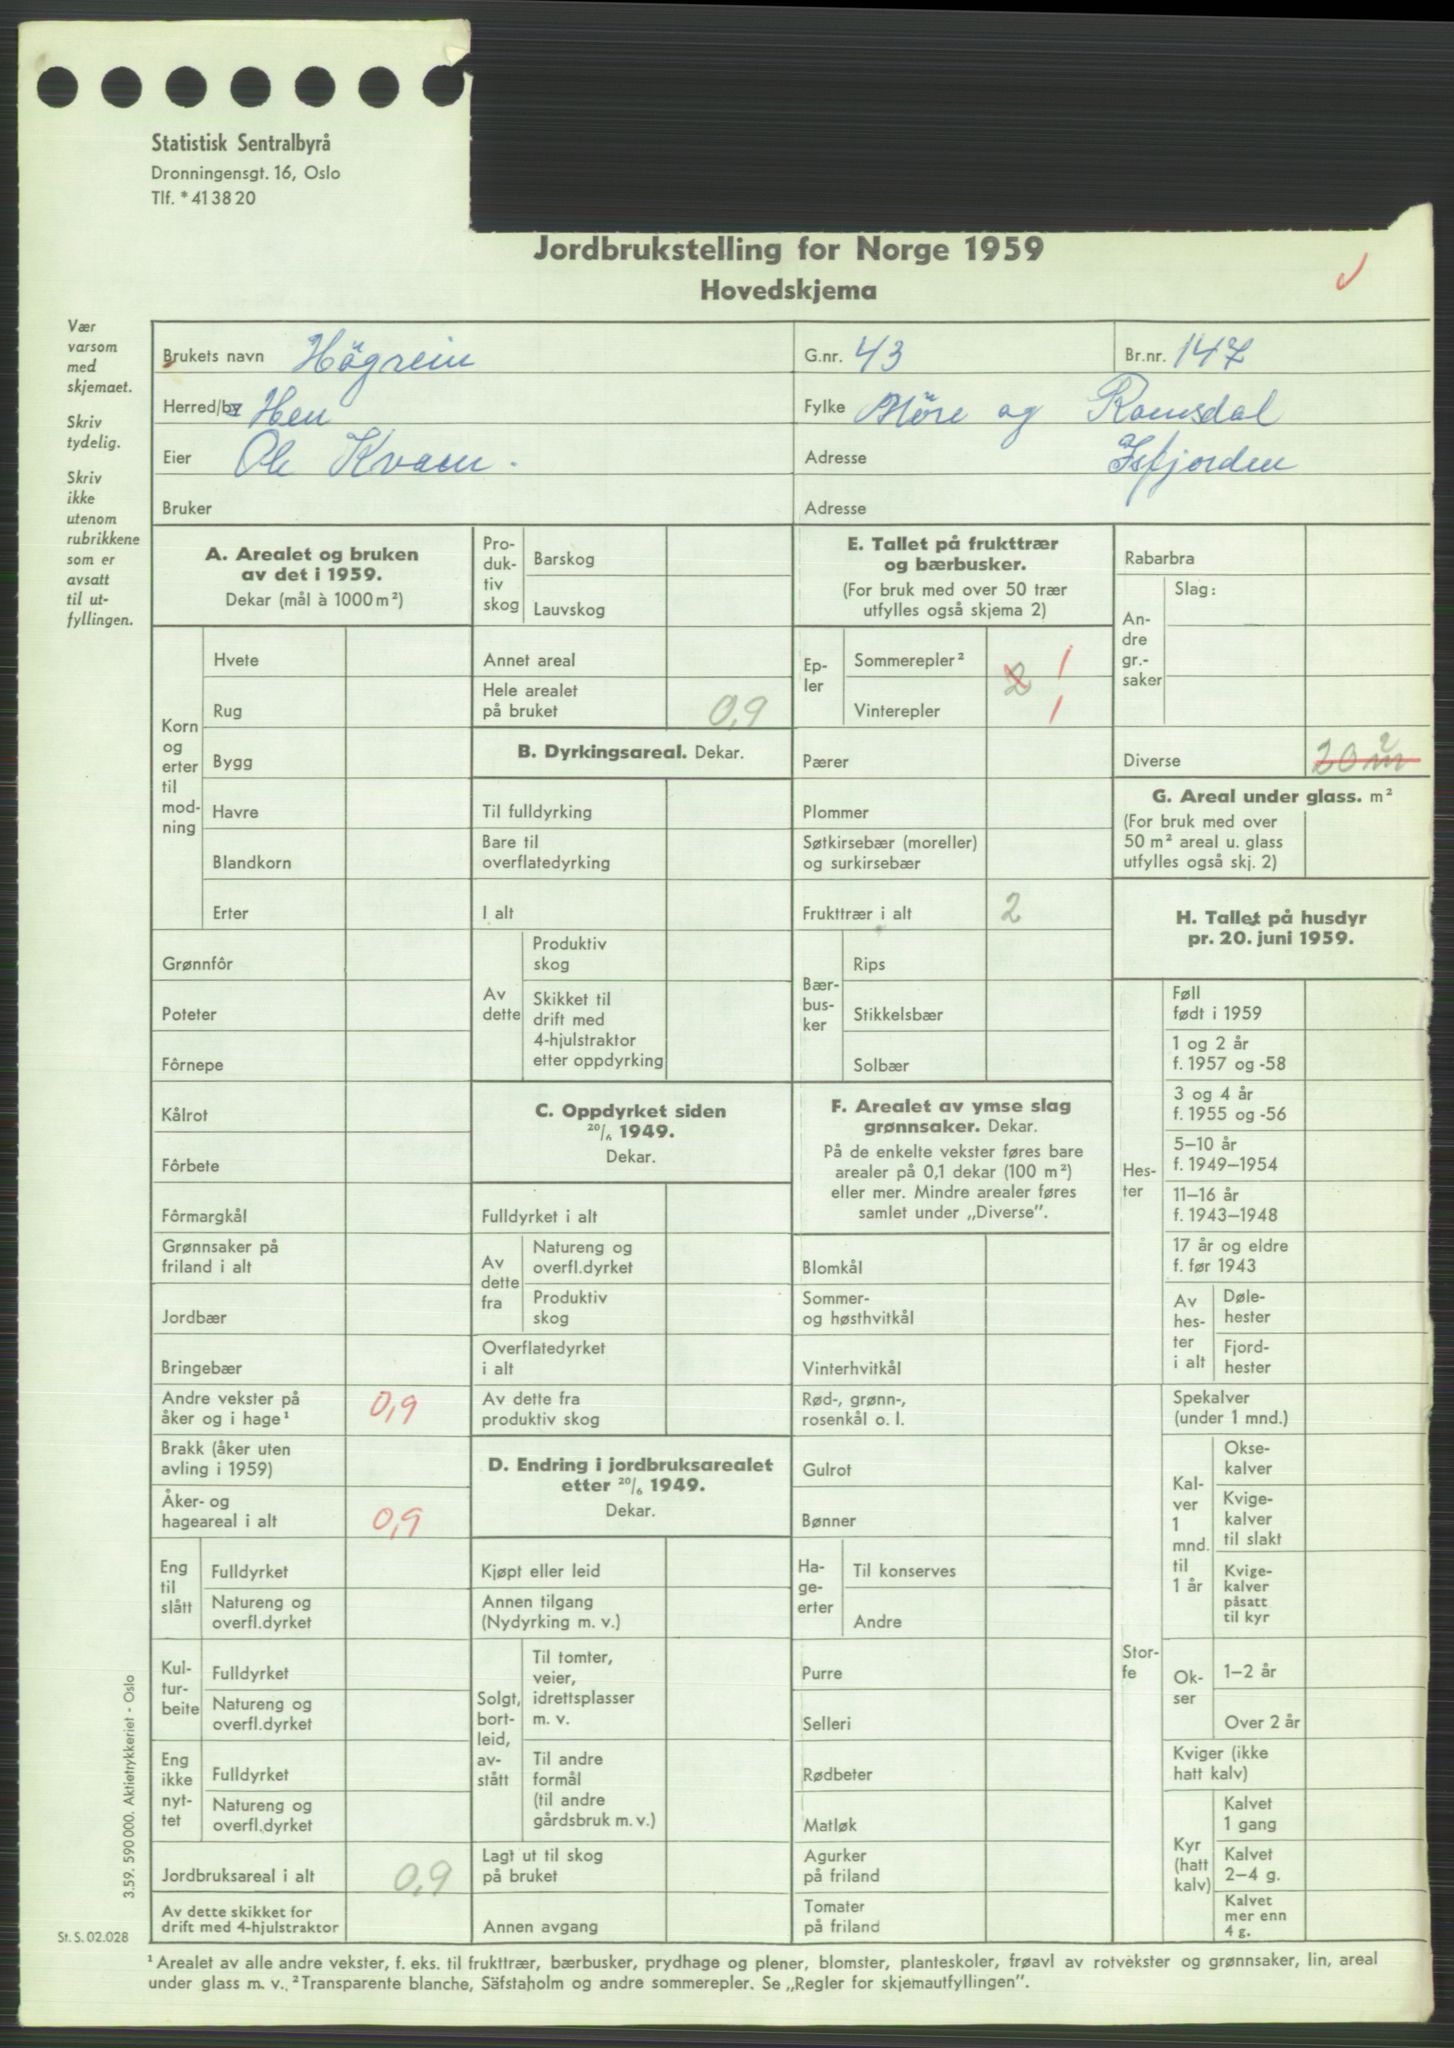 Statistisk Sentralbyrå
Dronningensgt. 16, Oslo
Tlf. * 41 38 20
Jordbrukstelling for Norge 1959
Hovedskjema
Vær
varsom
med
skjemaet.
Skriv
tydelig.
Skriv
ikke
utenom
rubrikkene
som er
avsatt
til ut-
fyllingen.
Brukets navn Högrein G.nr. 43 Br.nr. 147
Herred/by Hen Fylke Møre og Romsdal
Eier Ole Kvam. Adresse Isfjorden
Bruker Adresse
A. Arealet og bruken
av det i 1959.
Dekar (mål à 1000 m²)
Korn
og
erter
til
mod-
ning
Hvete
Rug
Bygg
Havre
Blandkorn
Erter
Grønnfôr
Poteter
Fôrnepe
Kålrot
Fôrbete
Fôrmargkål
Grønnsaker på
friland i alt
Jordbær
Bringebær
Andre vekster på
åker og i hage¹ 0,9
Brakk (åker uten
avling i 1959)
Åker- og
hageareal i alt 0,9
Eng
til
slått
Fulldyrket
Natureng og
overfl.dyrket
Kul-
tur-
beite
Fulldyrket
Natureng og
overfl.dyrket
Eng
ikke
nyt-
tet
Fulldyrket
Natureng og
overfl.dyrket
Jordbruksareal i alt 0,9
Av dette skikket for
drift med 4-hjulstraktor
Pro-
duk-
tiv
skog
Barskog
Lauvskog
Annet areal
Hele arealet
på bruket 0,9
B. Dyrkingsareal. Dekar.
Til fulldyrking
Bare til
overflatedyrking
I alt
Av
dette
Produktiv
skog
Skikket til
drift med
4-hjulstraktor
etter oppdyrking
C. Oppdyrket siden
20/6 1949.
Dekar.
Fulldyrket i alt
Av
dette
fra
Natureng og
overfl.dyrket
Produktiv
skog
Overflatedyrket
i alt
Av dette fra
produktiv skog
D. Endring i jordbruksarealet
etter 20/6 1949.
Dekar.
Kjøpt eller leid
Annen tilgang
(Nydyrking m. v.)
Solgt,
bort-
leid,
av-
stått
Til tomter,
veier,
idrettsplasser
m. v.
Til andre
formål
(til andre
gårdsbruk m. v.)
Lagt ut til skog
på bruket
Annen avgang
E. Tallet på frukttrær
og bærbusker.
(For bruk med over 50 trær
utfylles også skjema 2)
Ep-
ler
Sommerepler² 2 1
Vinterepler 1
Pærer
Plommer
Søtkirsebær (moreller)
og surkirsebær
Frukttrær i alt 2
Bær-
bus-
ker
Rips
Stikkelsbær
Solbær
F. Arealet av ymse slag
grønnsaker. Dekar.
På de enkelte vekster føres bare
arealer på 0,1 dekar (100 m²)
eller mer. Mindre arealer føres
samlet under „Diverse”.
Blomkål
Sommer-
og høsthvitkål
Vinterhvitkål
Rød-, grønn-,
rosenkål o. l.
Gulrot
Bønner
Ha-
ge-
erter
Til konserves
Andre
Purre
Selleri
Rødbeter
Matløk
Agurker
på friland
Tomater
på friland
Rabarbra
An-
dre
gr.-
saker
Slag:
Diverse 20 m²
G. Areal under glass. m²
(For bruk med over
50 m² areal u. glass
utfylles også skj. 2)
H. Tallet på husdyr
pr. 20. juni 1959.
Hes-
ter
Føll
født i 1959
1 og 2 år
f. 1957 og -58
3 og 4 år
f. 1955 og -56
5–10 år
f. 1949–1954
11–16 år
f. 1943–1948
17 år og eldre
f. før 1943
Av
hes-
ter
i alt
Døle-
hester
Fjord-
hester
Stor-
fe
Spekalver
(under 1 mnd.)
Kal-
ver
1
mnd.
til
1 år
Okse-
kalver
Kvige-
kalver
til slakt
Kvige-
kalver
påsatt
til kyr
Ok-
ser
1–2 år
Over 2 år
Kviger (ikke
hatt kalv)
Kyr
(hatt
kalv)
Kalvet
1 gang
Kalvet
2–4 g.
Kalvet
mer enn
4 g.
3.59. 590 000. Aktietrykkeriet - Oslo
St. S. 02.028
¹ Arealet av alle andre vekster, f. eks. til frukttrær, bærbusker, prydhage og plener, blomster, planteskoler, frøavl av rotvekster og grønnsaker, lin, areal
under glass m. v. ² Transparente blanche, Säfstaholm og andre sommerepler. Se „Regler for skjemautfyllingen”.